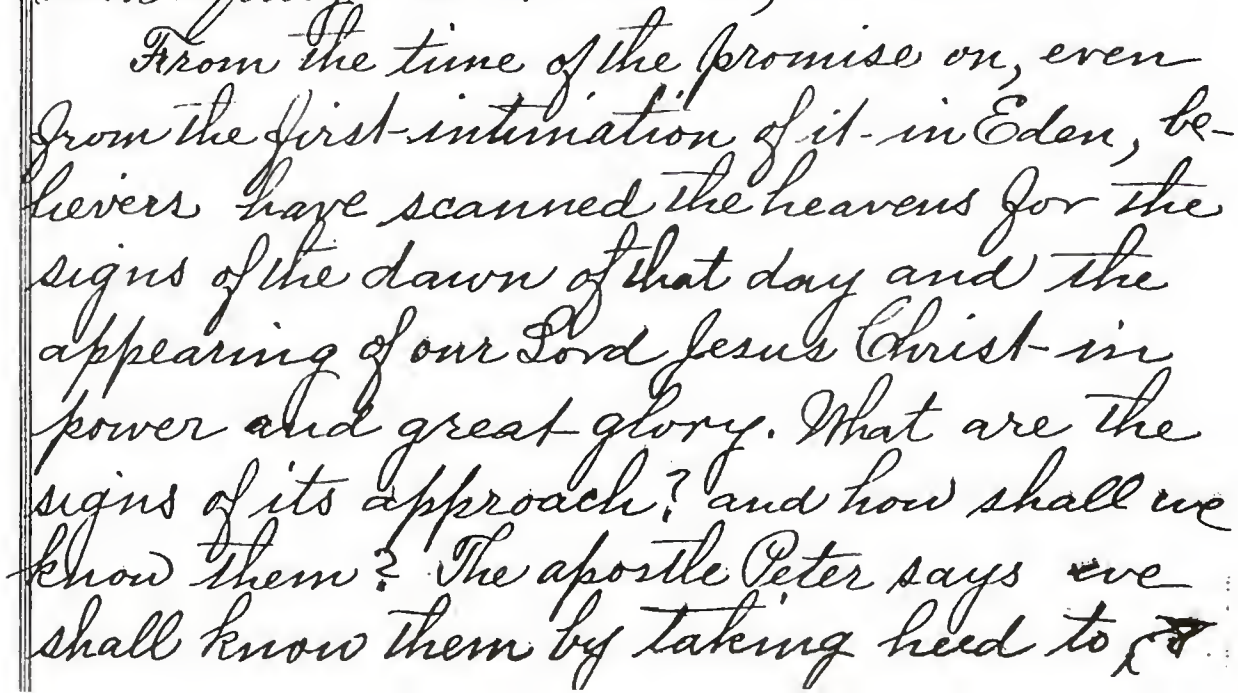 From the time of the promise on, even
from the first intimation of it in Eden, be-
lievers have scanned the heavens for the
signs of the dawn of that day and the
appearing of our Lord Jesus Christ in
power and great glory. What are the
signs of its approach? and how shall we
know them? The apostle Peter says we
shall know them by taking heed to